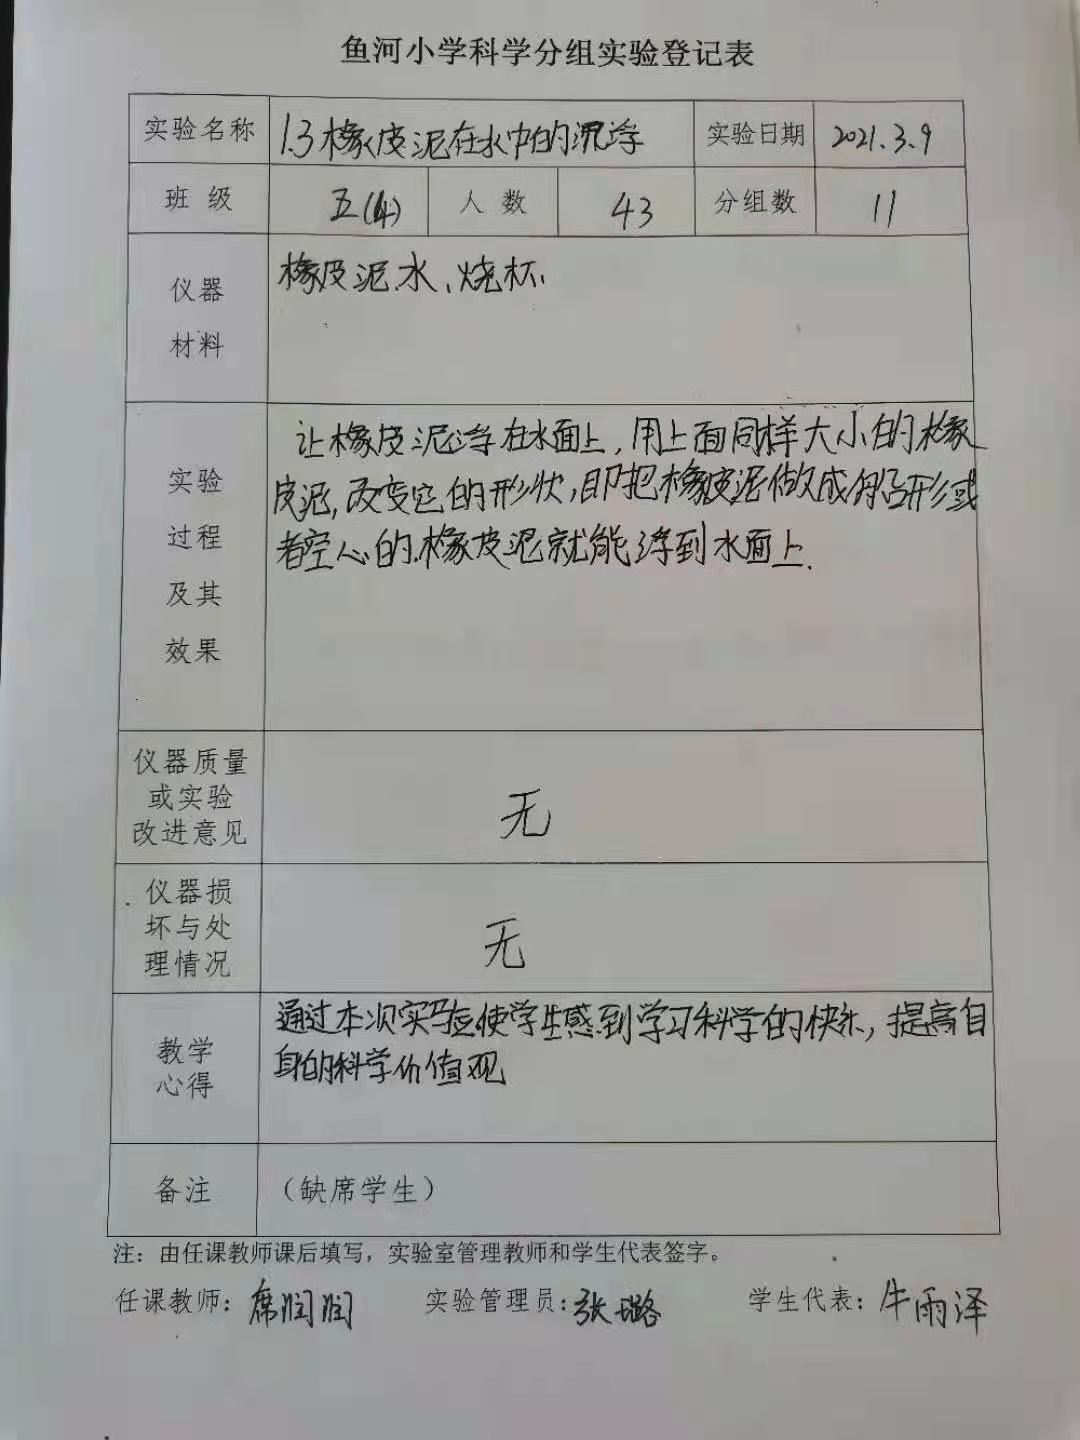 鱼河小学科学分组实验登记表
实验名称 1.3橡皮泥在水中的沉浮 实验日期 2021.3.9
班级 五(4) 人数 43 分组数 11
仪器材料 橡皮泥、水、烧杯.
实验过程及其效果
让橡皮泥浮在水面上,用上面同样大小的橡
皮泥,改变它的形状,即把橡皮泥做成船形或
者空心的.橡皮泥就能浮到水面上.
仪器质量或实验改进意见 无
仪器损坏与处理情况 无
教学心得
通过本次实验使学生感到学习科学的快乐,提高自
身的科学价值观
备注 （缺席学生）
注：由任课教师课后填写，实验室管理教师和学生代表签字。
任课教师：席润润 实验管理员：张璐 学生代表：牛雨泽